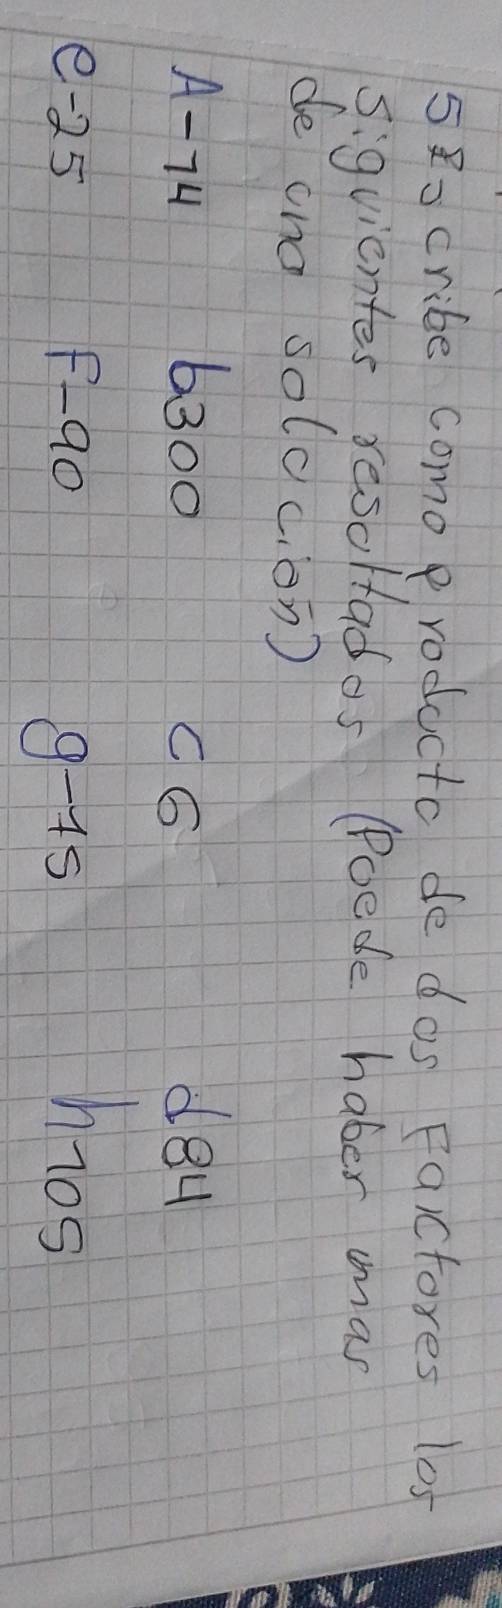 5 Escribe como producto de dos Factores los
Siguientes resultados (Puede haber mas
de una solución)
A-14 b300 c6 d84
e-25 F-90 g-15 h105